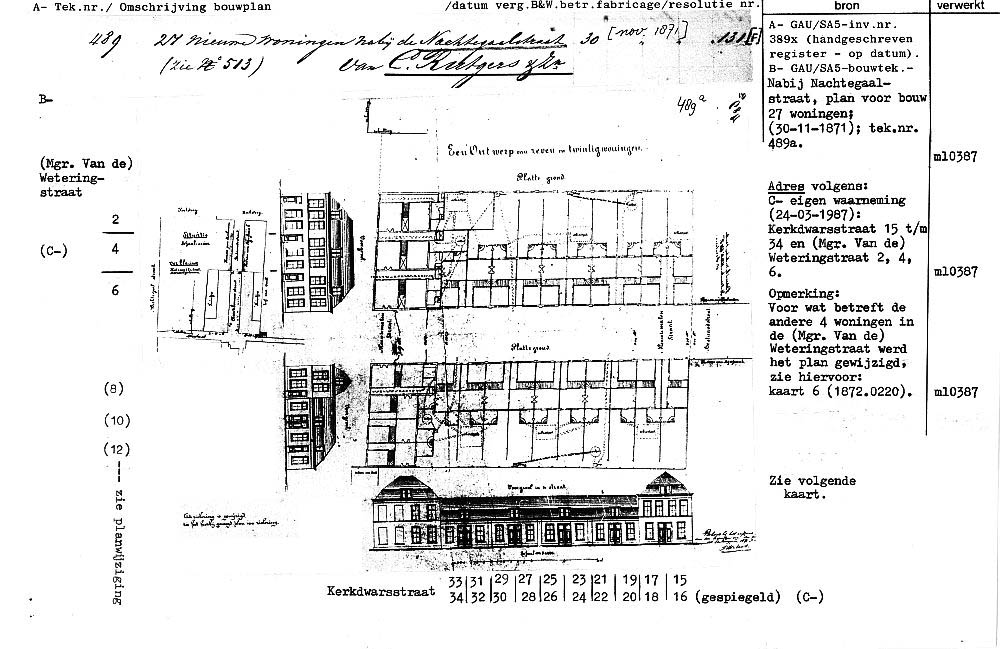 A- Tek.nr./ Omschrijving bouwplan /datum verg.B&W.betr.fabricage/resolutie nr. bron verwerkt
489 27 nieuwe woningen nabij de Nachtegaalstraat 30 [nov. 1871] 131 [F]
(zie No 513) Van C. Rutgers
A- GAU/SA5-inv.nr.
389x (handgeschreven
register - op datum).
B- GAU/SA5-bouwtek.-
Nabij Nachtegaal-
straat, plan voor bouw
27 woningen;
(30-11-1871); tek.nr.
489a.
m10387
Adres volgens:
C- eigen waarneming
(24-03-1987):
Kerkdwarsstraat 15 t/m
34 en (Mgr. Van de)
Weteringstraat 2, 4,
6.
m10387
Opmerking:
Voor wat betreft de
andere 4 woningen in
de (Mgr. Van de)
Weteringstraat werd
het plan gewijzigd,
zie hiervoor:
kaart 6 (1872.0220).
m10387
Zie volgende
kaart.
B-
489a
(Mgr. Van de)
Wetering-
straat
2
(C-) 4
6
(8)
(10)
(12)
--- zie planwijziging
Een Ontwerp van zeven en twintig woningen.
Platte grond
Situatie
Platte grond
Voorgevel in de straat
Kerkdwarsstraat
33|31|29|27|25|23|21|19|17|15
34|32|30|28|26|24|22|20|18|16 (gespiegeld) (C-)